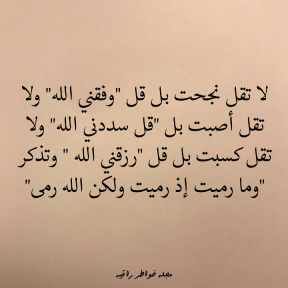 لا تقل نجحت بل قل "وفقني الله" ولا
تقل أصبت بل "قل سددني الله" ولا
تقل كسبت بل قل "رزقني الله " وتذكر
"وما رميت إذ رميت ولكن الله رمى"
مجلة خواطر راقيه